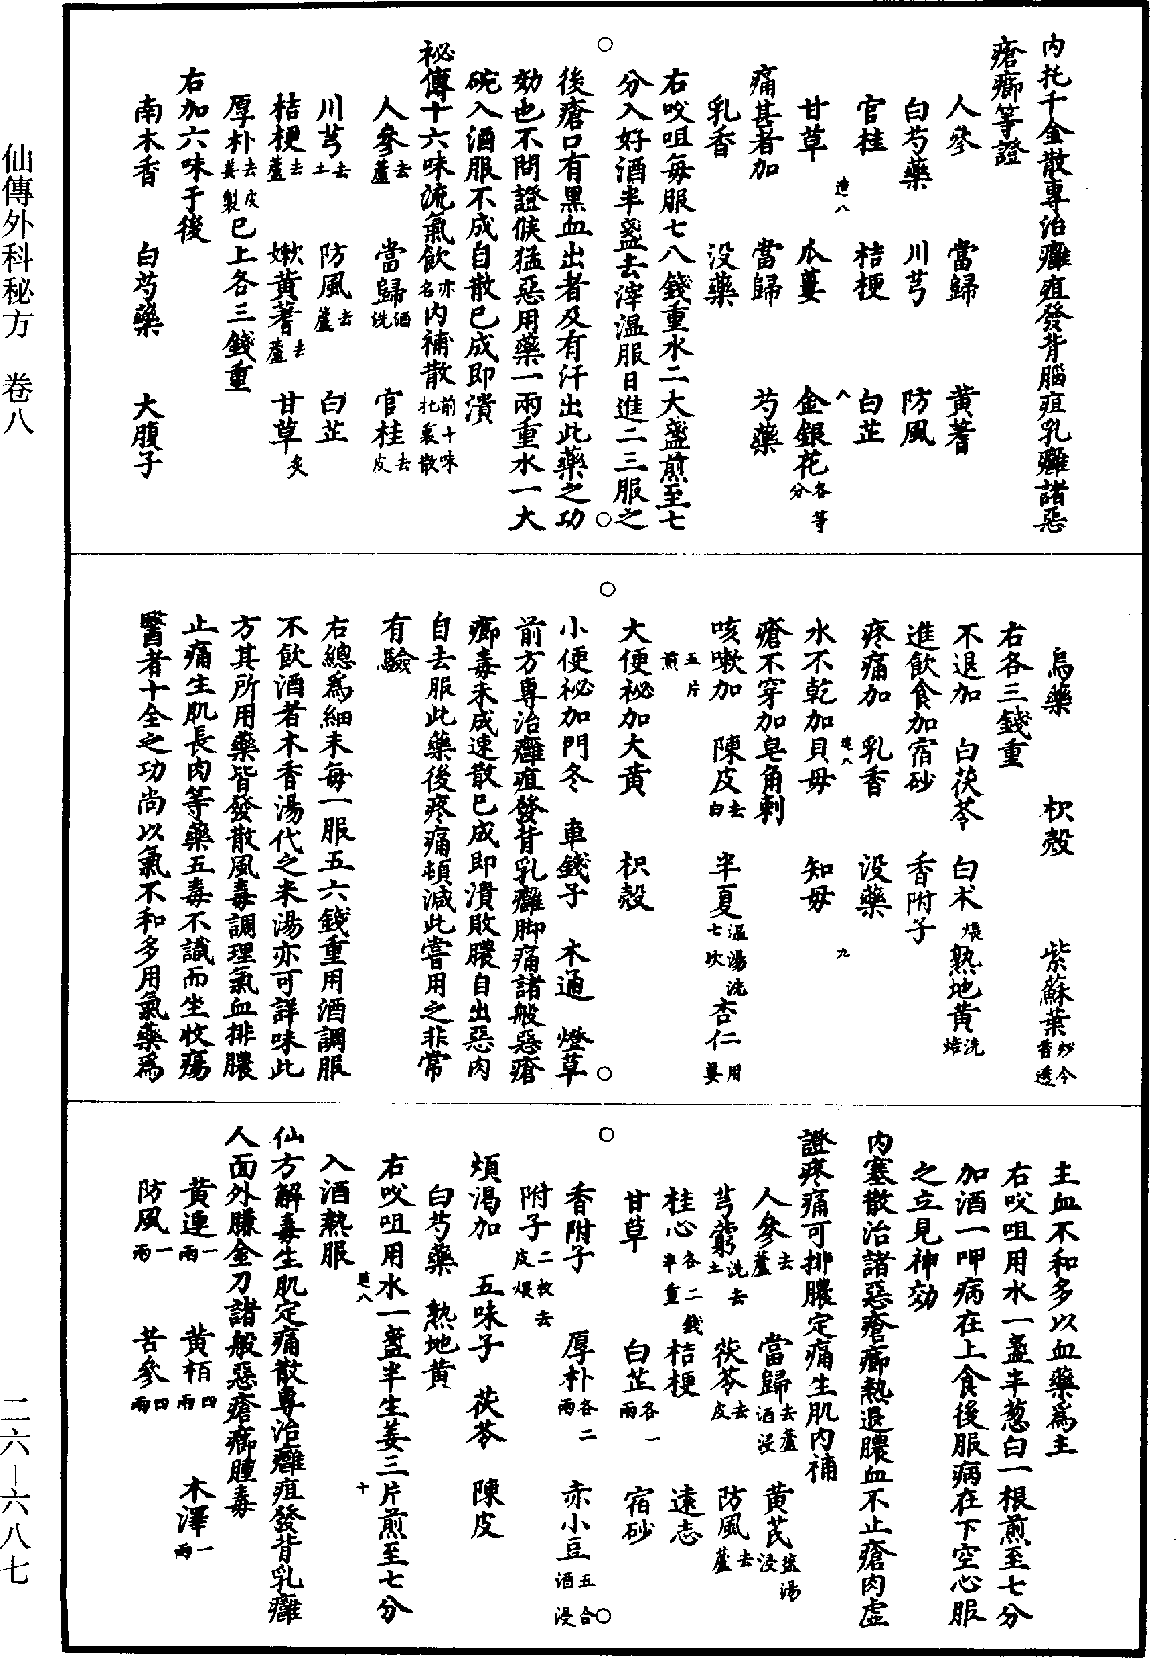 内托千金散專治癰疽發背腦疽乳癰諸惡
瘡癤等證
人參 當歸 黃蓍
白芍藥 川芎 防風
官桂 桔梗 白芷
甘草 瓜蔞 金銀花各等分
痛甚者加 當歸 芍藥
乳香 没藥
右㕮咀每服七八錢重水二大盞煎至七
分入好酒半盞去滓温服日進二三服之
後瘡口有黑血出者及有汗出此藥之功
効也不問證候猛惡用藥一兩重水一大
碗入酒服不成自散已成即潰
祕傳十六味流氣飲亦名内補散前十味牝㐮散
人參去蘆 當歸酒洗 官桂去皮
川芎去土 防風去蘆 白芷
桔梗去蘆 嫰黃蓍去蘆 甘草炙
厚朴去皮姜製已上各三錢重
右加六味于後
南木香 白芍藥 大腹子
烏藥 枳殼 紫蘇葉炒令香透
右各三錢重
不退加 白茯苓 白朮煨熟地黃洗焙
進飲食加宿砂 香附子
疼痛加 乳香 没藥
水不乾加貝母 知母
瘡不穿加皂角刺
咳嗽加 陳皮去白 半夏温湯洗七次杏仁二用姜
五片煎
大便祕加大黃 枳殼
小便祕加門冬 車錢子 木通 燈草
前方專治癰疽發背乳癰脚痛諸般惡瘡
癤毒未成速散已成即潰敗膿自出惡肉
自去服此藥後疼痛頓減此嘗用之非常
有驗
右總爲細末每一服五六錢重用酒調服
不飲酒者木香湯代之米湯亦可詳味此
方其所用藥皆發散風毒調理氣血排膿
止痛生肌長肉等藥五毒不識而坐收瘍
醫者十全之功尚以氣不和多用氣藥爲
主血不和多以血藥爲主
右㕮咀用水一盞半葱白一根煎至七分
加酒一呷病在上食後服病在下空心服
之立見神効
内塞散治諸惡瘡癤熱退膿血不止瘡肉虚
證疼痛可排膿定痛生肌内補
人參去蘆 當歸去蘆酒浸 黃芪鹽湯浸
芎藭洗去土 茯苓去皮 防風去蘆
桂心各二錢半重 桔梗 遠志
甘草 白芷各一兩 宿砂
香附子 厚朴各二兩 赤小豆五合酒浸
附子二枚去皮煨
煩渴加 五味子 茯苓 陳皮
白芍藥 熟地黃
右㕮咀用水一盞半生姜三片煎至七分
入酒熱服
仙方解毒生肌定痛散專治癰疽發背乳癰
人面外臁金刀諸般惡瘡癤腫毒
黃連一兩 黃栢四兩 木澤一兩
防風一兩 苦參四兩
仙傳外科秘方 卷八
二六—六八七